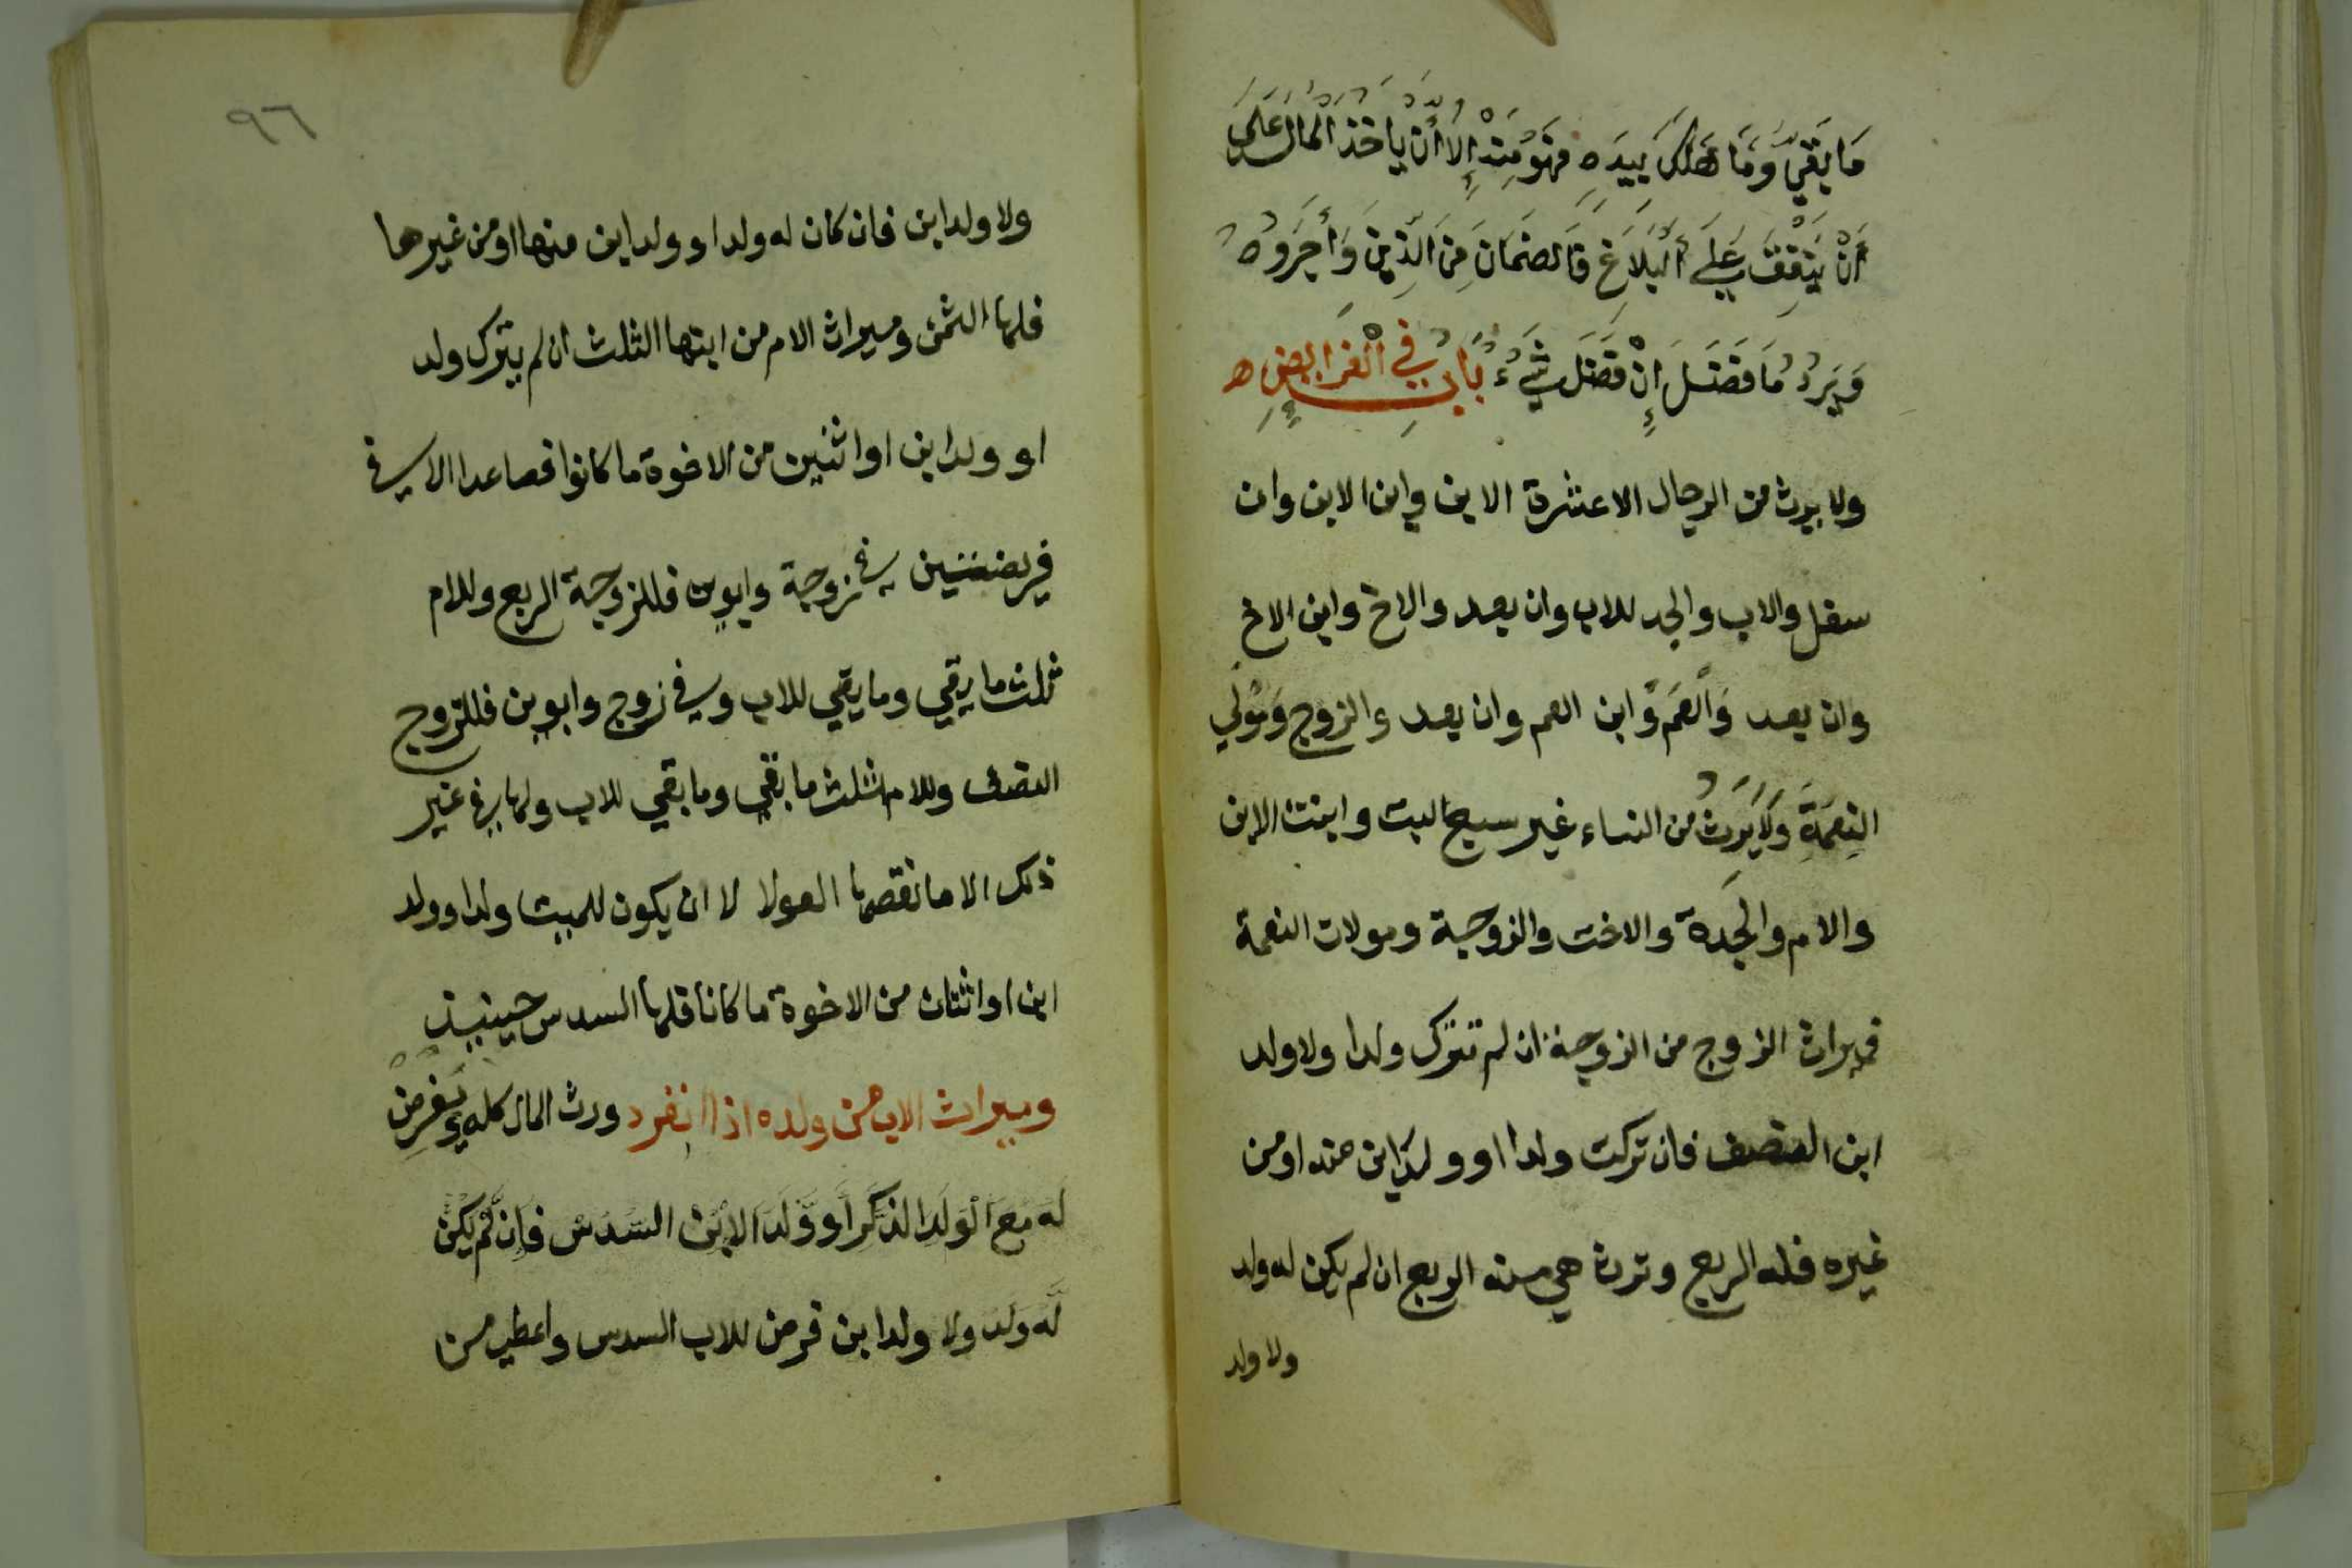 مَا بَقِيَ وَمَا هَلَكَ بِيَدِهِ فَهُوَ مِنْهُ إِلَّا أَنْ يَأخُذَ الْمَالَ عَلَى
أَنْ يُنْفِقَ عَلَى الْبَلَاغِ فَالضَمَانَ مِنَ الَّذِينَ وَأَجَرُوهُ
وَيَرُدُّ مَا فَضَلَ إِنْ فَضَلَ شَيْءٌ بَابٌ فِي الْفَرَايِضِ ه
ولا يرث من الرجال الا عشرة الابن وابن الابن وان
سفل والاب والجد للاب وان بعد والاخ وابن الاخ
وان بعد وَالْعَم وَابن العم وان بعد والزوج وَمَوْلَي
النِعمَةِ وَلَا يَرِثُ من النساء غير سبع البنت وابنت الابن
والام والجدة والاخت والزوجة ومولات النعمة
فميراث الزوج من الزوجة ان لم تترك ولدا ولا ولد
ابن النصف فان تركت ولدا او ولد ابن منه او من
غيره فله الربع وترث هي منه الربع ان لم يكن له ولد
ولا ولد
٩٦
ولا ولد ابن فان كان له ولد او ولد ابن منها او من غيرها
فلها الثمن وميراث الام من ابنها الثلث ان لم يترك ولد
او ولد ابن او اثنين من الاخوة ما كانوا فصاعدا الا في
فريضتين في زوجة وابوين فللزوجة الربع وللام
ثلث ما بقي وما بقي للاب وفي زوج وابوين فللزوج
النصف وللام ثلث ما بقي وما بقي للاب ولها في غير
ذلك الا ما نقصها العول الا ان يكون للميت ولد او ولد
ابن او اثنان من الاخوة ما كانا فلها السدس حينيذ
وميراث الاب من ولده اذا انفرد ورث المال كله ويُفرض
لَه مَعَ الْوَلَد الذَكَر أو وَلَد الابْن السُدَسُ فَإن لَّم يَكُن
لَّه وَلَد ولا ولد ابن فرض للاب السدس واعطي من